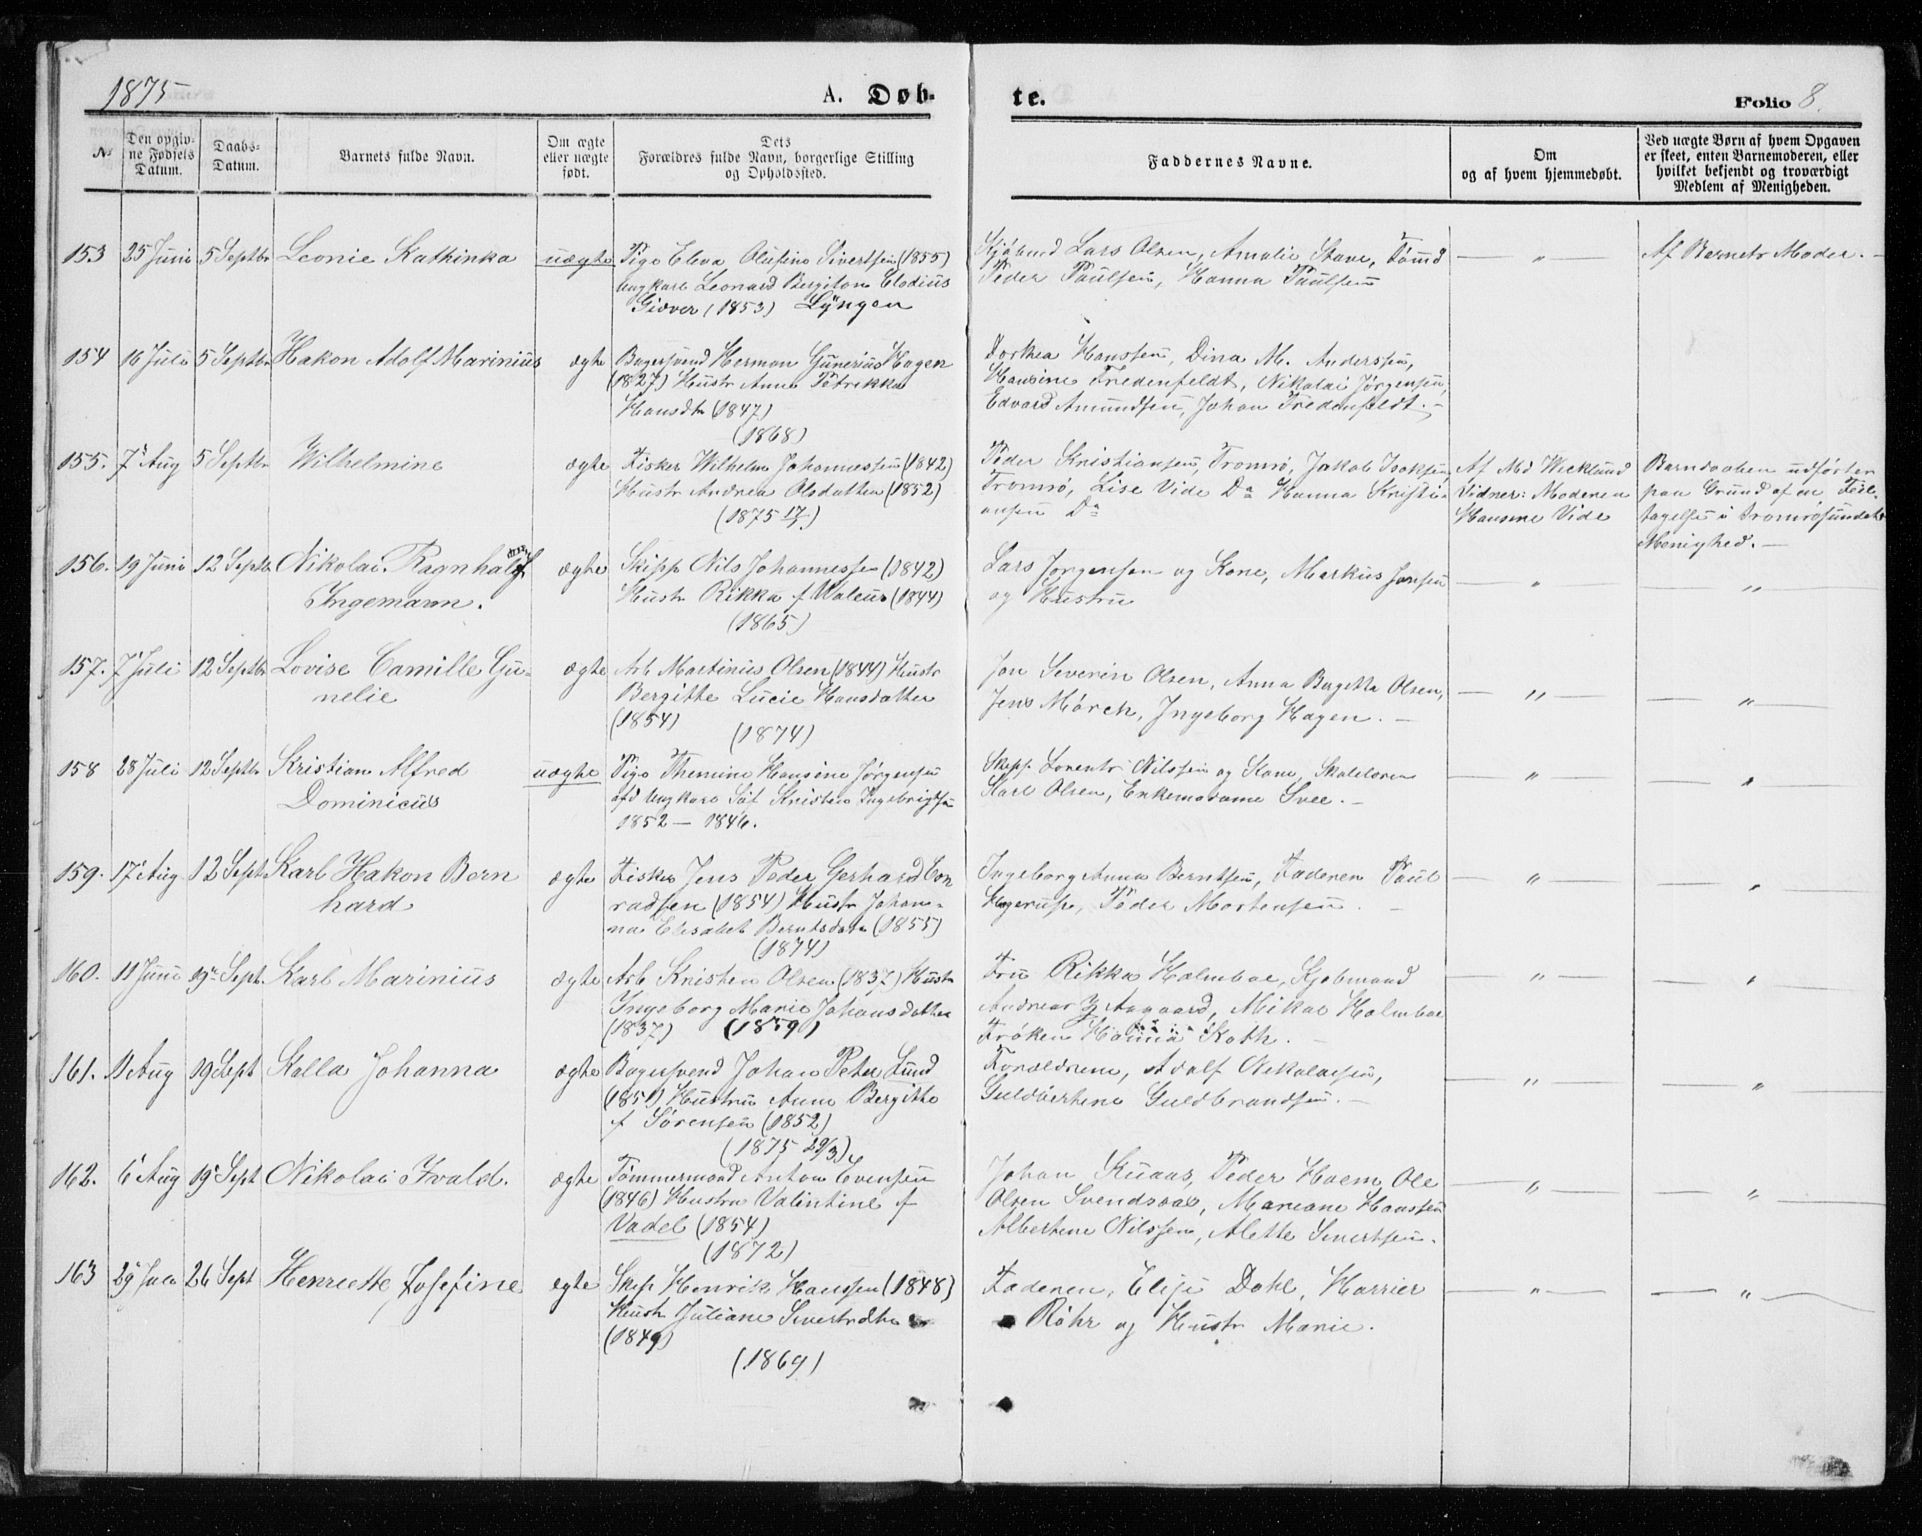 1875
A. Døb-
te.
Folio 8.
No
Den opgiv-
ne Fødsels
Datum.
Daabs-
Datum.
Barnets fulde Navn.
Om ægte
eller uægte
født.
Dets
Forældres fulde Navn, borgerlige Stilling
og Opholdssted.
Faddernes Navne.
Om
og af hvem hjemmedøbt.
Ved uægte Børn af hvem Opgaven
er skeet, enten Barnemoderen, eller
hvilket bekjendt og troværdigt
Medlem af Menigheden.
153 25 Juni 5 Septbr Leonie Kathinka uægte
Pige Eleva Olufine Sivertsen (1855)
Ungkarl Leonard Bergiton Elodius
Giæver (1853) Lyngen
Lars Olsen, Amalie Stave,
Peder Paulsen, Hanna Paulsen
— " —
Af Barnets Moder. —
154 16 Juli 5 Septbr Hakon Adolf Marinius ægte
Bagersvend Herman Gunerius Hagen
(1827) Hustr Anna Petrikka
Hansdtr (1847)
(1868)
Dorthea Hanssen, Dina M. Anderssen,
Hansine Fredenfeldt, Nikolai Jørgensen,
Edvard Amundsen, Johan Fredenfeldt. —
155. 7 Aug 5 Septbr Wilhelmine ægte
Fisker Wilhelm Johannessen (1842)
Hustr Andrea Olsdatter (1852)
(1875)
Peder Kristiansen, Tromsø, Jakob Isaksen
Tromsø, Lise Vide Da Hanna Kristi-
ansen Da
Af Md Wicklund
Vidner: Moderen
Hansine Vide
Barnedaaben udført her
paa Grund af en Feil-
tagelse i Tromsøsundets
Menighed. —
156. 19 Juni 12 Septbr Nikolai Ragnhalf
Ingemann. ægte
Skipp Nils Johannessen (1842)
Hustr Rikka f Waleur (1844)
(1865)
Lars Jørgensen og Kone, Markus Jensen
og Hustru
— " —
— " —
157. 7 Juli 12 Septbr Lovise Camille Gu-
nelie ægte
Arb Martinus Olsen (1844) Hustr
Bergitte Lucie Hansdatter
(1854)
(1874)
Jon Severin Olsen, Anna Bergitta Olsen,
Jens Mörch, Ingeborg Hagen. —
— " —
— " —
158 28 Juli 12 Septbr Kristian Alfred
Dominicus uægte
Pige Themine Hansine Jørgensen
Ungkarl Søf Kristen Ingebrigtsen
1852 — 1846.
Skipp. Lorents Nilssen og Kone, Skolelærer
Karl Olsen, Enkemadame Svee. —
— " —
— " —
159. 17 Aug 12 Sept Karl Hakon Bern
hard ægte
Fisker Jens Peder Gerhard Con
radsen (1854) Hustr Johan-
na Elisabet Berntsdatr (1855)
(1874)
Ingeborg Anna Berntsen, Faderen Paul
Hagerup, Peder Mortensen. —
— " —
— " —
160. 11 Juni 19 Sept. Karl Marinius ægte
Arb Kristen Olsen (1837) Hustr
Ingeborg Marie Johansdatter
(1837) (1859)
Fru Rikka Holmboe, Kjøbmand
Andreas Z Aagaard, Mikal Holmboe
Frøken Hanna Koth. —
— " —
— " —
161. 1 Aug 19 Sept Kalla Johanna ægte
Bagersvend Johan Peter Lund
(1851) Hustru Anna Bergitte
f Sørensen (1852)
(1875 29/3)
Forældrene, Adolf Nikolaisen,
Guldbrandsen. —
— " —
— " —
162. 6 Aug 19 Sept Nikolai Ivald. ægte
Tømmermand Anton Evensen
(1846) Hustru Valentine f
Vadel (1854)
(1872)
Johan Ruaas, Peder Hoem Ole
Olsen Svendsaas, Mariane Hanssen
Albertine Nilssen, Alette Sivertsen.
— " —
— " —
163 29 Juli 26 Sept Henriette Josefine egte
Skip Henrik Hanssen (1848)
Hustr Juliane Sivertsdtr
(1849)
(1869)
Faderen, Elise Dahl, Harrier
Röhr og Hustr Marie.
— " —
— " —